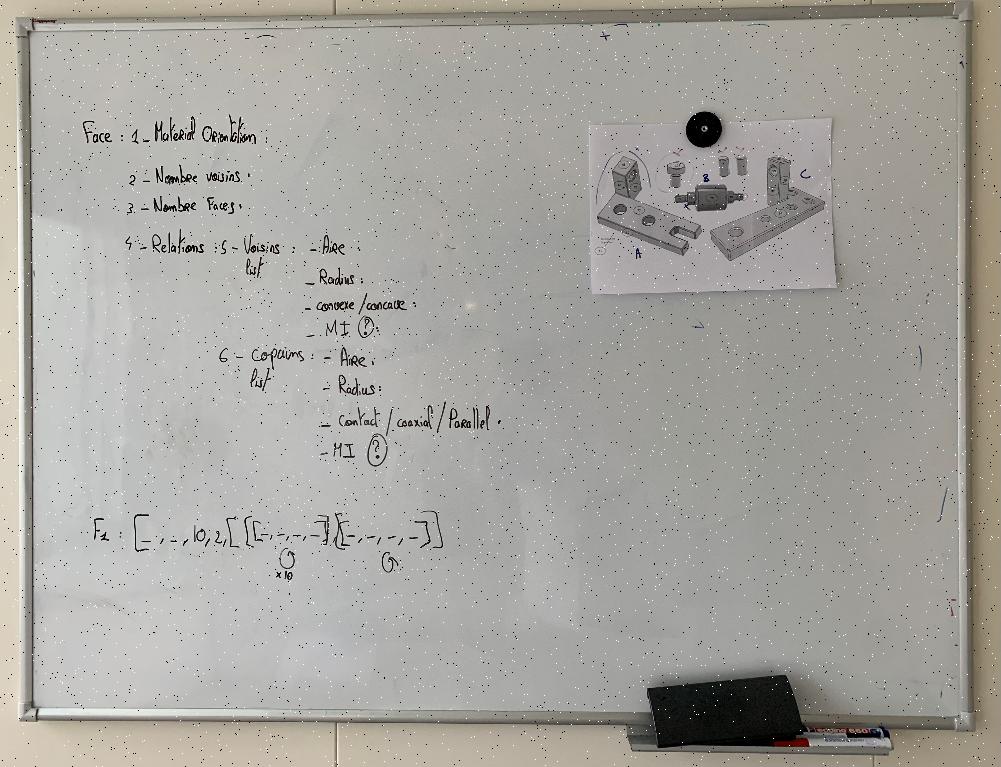 Face : 1 - Material Orientation :
2 - Nombre voisins :
3 - Nombre Faces :
4 - Relations : 5 - Voisins : - Aire :
list
- Radius :
- convexe / concave :
- MI ? :
6 - Copains : - Aire :
list
- Radius :
- Contact / coaxial / Parallel .
- MI ?
F1 : [_, _, 10, 2, [[[_, _, _, _], [_, _, _, _]]]
x10
B
C
A
edding 660